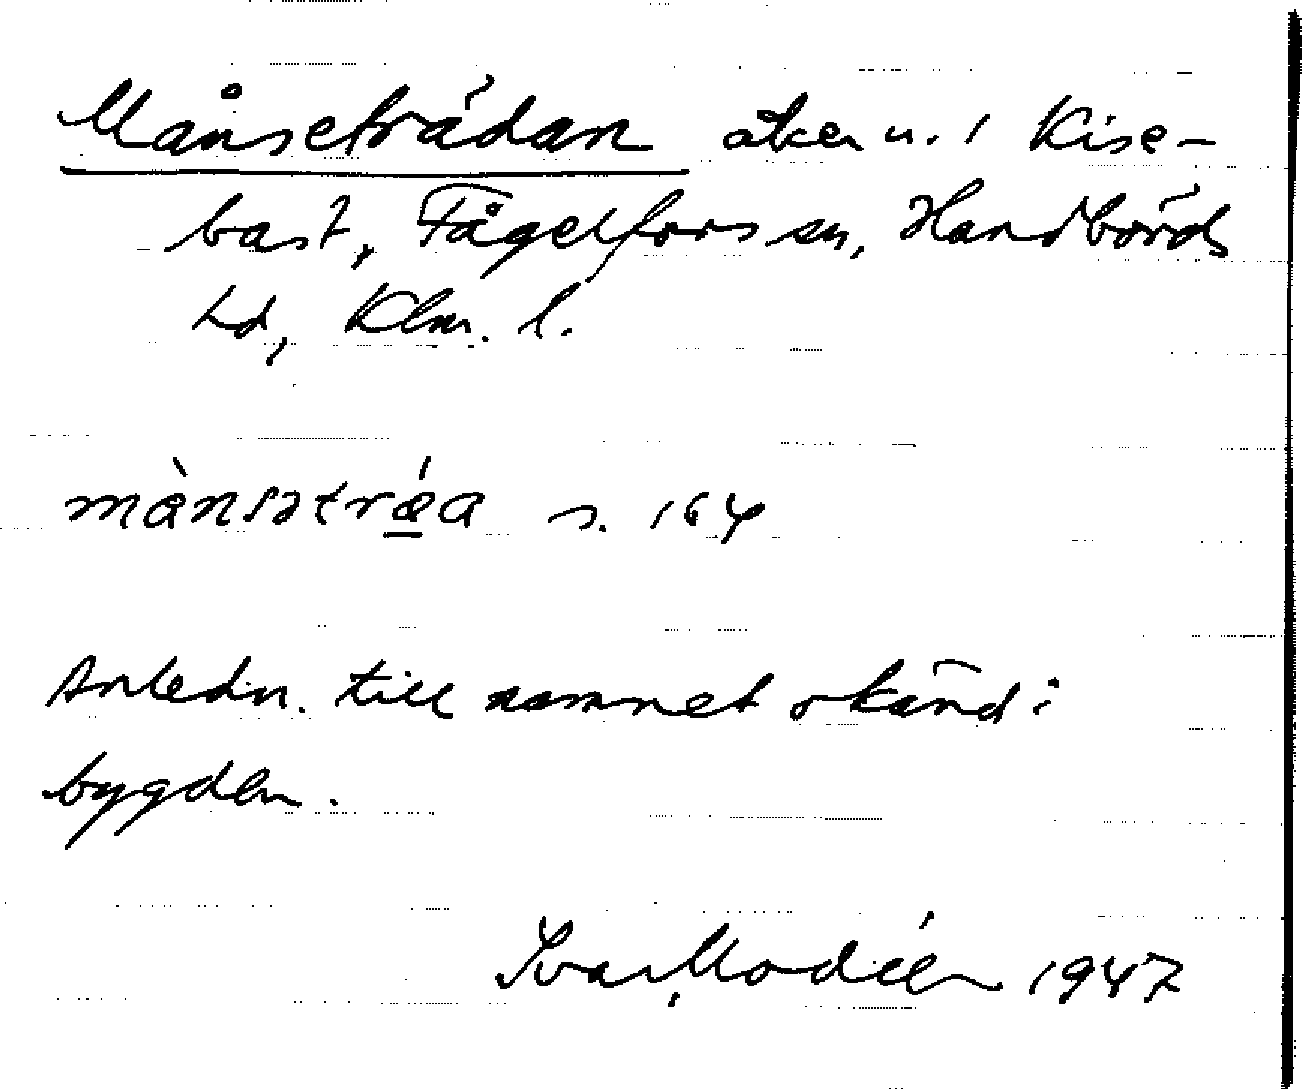 Månseträdan åker u. 1 Kise-
bast, Fågelfors sn, Handbörds
hd, Klm. l.
mànsətræ̀a s. 164
Anledn. till namnet okänd i
bygden.
Ivar Modéer 1947